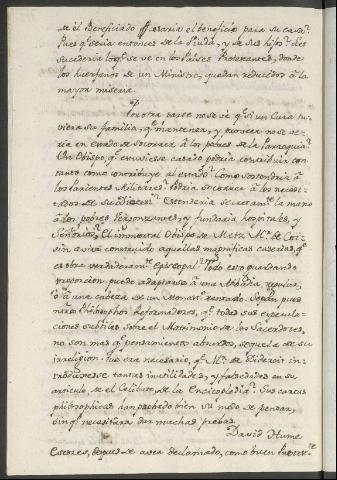 se él Beneficiado gozaria el beneficio para su casa?
Pues qe. seria entonces de la Viuda, y de sus hijos? les
sucederia lo qe. se ve en los Paises Protestantes, donde
los huerfanos de un Ministro, quedan reducidos á la
mayor miseria.
Por otra parte no se vé qe. si un Cura tu-
viera su familia, qe. mantener, y proveer no se ve-
ria en estado de socorrer á los pobres de la Parroquia?
Un Obispo, qe. estuviesse casado podria contribuir con
tanto como contribuye al estado? Como sostendria á
los Parientes Militares? Podria socorrer á los necesi-
tados de su Diocesi? Estenderia secretamte. la mano
á los pobres vergonzantes, y fundaria hospitales, y
El immortal Obispo de Metz Mr. de Coi-
sin avria construido aquellas magnificas caserdas, qe.
es obra verdaderamte. Episcopal? Todo esto guardando
proporcion puede adaptarse á una Abbadia regular,
ó á una cabeza de un Monasto. rentado. Sepan pues
nuestros Philosophos Reformadores, qe. todas sus especula-
ciones subtiles sobre el Matrimonio de los Sacerdotes,
no son mas qe. pensamientos absurdos, sequela de su
irreligion. No era necesario, qe. Mr. Diderot in-
trodugese tantas inutilidades, y falsedades en su
articulo de el Celibato de la Enciclopedia? Sus cartas
philosophicas han probado bien su modo de pensar,
sin qe. necesitára dar muchas probas.
David Hume
Escoces, despues de aver declamado, como buen Protes-te